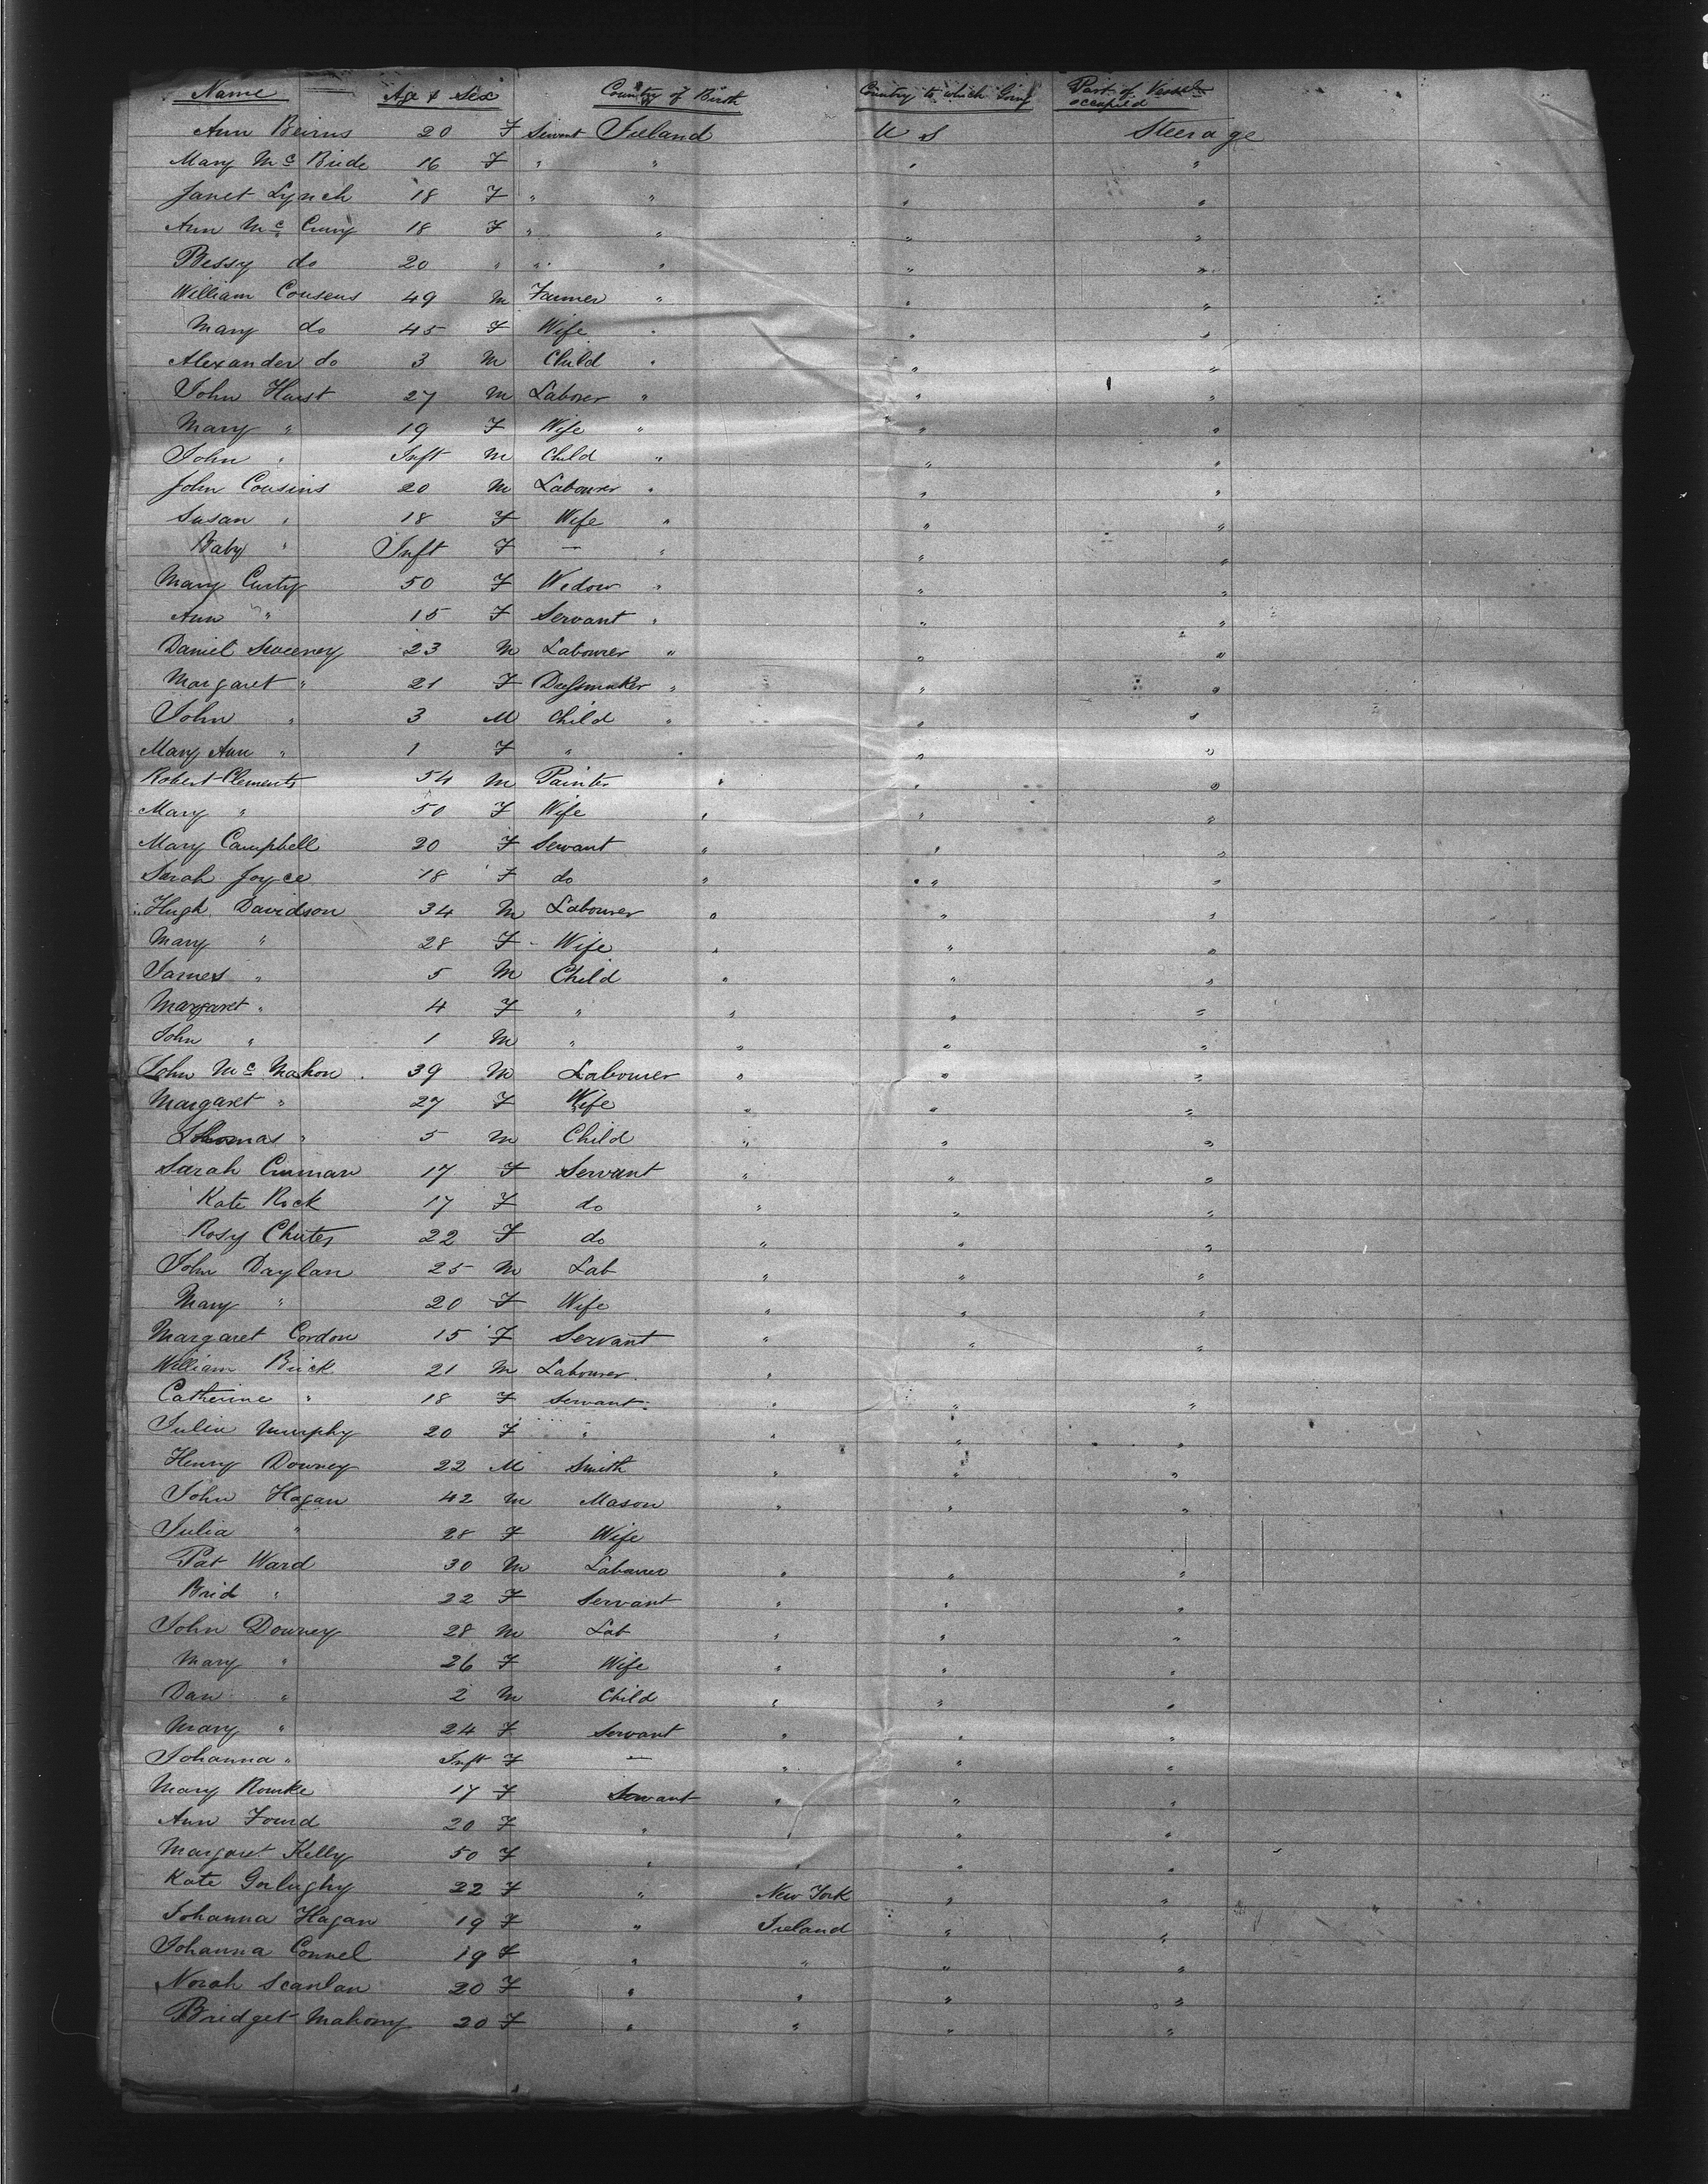 Name Age & Sex Country of Birth Country to which Going Part of Vessel occupied
Ann Beirns 20 F Servant Ireland U S Steerage
Mary Mc Bride 16 F " " " "
Janet Lynch 18 F " " " "
Ann Mc 18 F " " " "
Bessy do 20 " " " " "
William Cousens 49 M Farmer " " "
Mary do 45 F Wife " " "
Alexander do 3 M Child " " "
John Hurst 27 M Laborer " " "
Mary " 19 F Wife " " "
John " Inft M Child " " "
John Cousins 20 M Labourer " " "
Susan " 18 F Wife " " "
Baby " Inft F — " " "
Mary Curty 50 F Widow " " "
Ann " 15 F Servant " " "
Daniel Sweeney 23 M Labourer " " "
Margaret " 21 F Dressmaker " " "
John " 3 M Child " " "
Mary Ann " 1 F " " " "
Robert Clements 54 M Painter " " "
Mary " 50 F Wife " " "
Mary Campbell 20 F Servant " " "
Sarah Joyce 18 F do " " "
Hugh Davidson 34 M Labourer " " "
Mary " 28 F Wife " " "
James " 5 M Child " " "
Margaret " 4 F " " " "
John " 1 M " " " "
John Mc Mahon 39 M Labourer " " "
Margaret " 27 F Wife " " "
Thomas " 5 M Child " " "
Sarah 17 F Servant " " "
Kate Rock 17 F do " " "
Rosy Chutes 22 F do " " "
John Daylan 25 M Lab " " "
Mary " 20 F Wife " " "
Margaret Cordon 15 F Servant " " "
William Brick 21 M Labourer "
Catherine " 18 F Servant " " "
Julia Murphy 20 F " " " "
Henry Downey 22 M Smith " " "
John Hogan 42 M Mason " " "
Julia " 28 F Wife
Pat Ward 30 M Labourer " " "
Brid " 22 F Servant " " "
John Downey 28 M Lab " " "
Mary " 26 F Wife " " "
Dan " 2 M Child " " "
Mary " 24 F Servant " " "
Johanna " Inft F — " " "
Mary Rourke 17 F Servant " " "
Ann 20 F " " " "
Margaret Kelly 50 F " " " "
Kate 22 F " New York " "
Johanna Hagan 19 F " Ireland " "
Johanna Connel 19 F " " " "
Norah Scanlan 20 F " " " "
Bridget Mahony 20 F " " " "